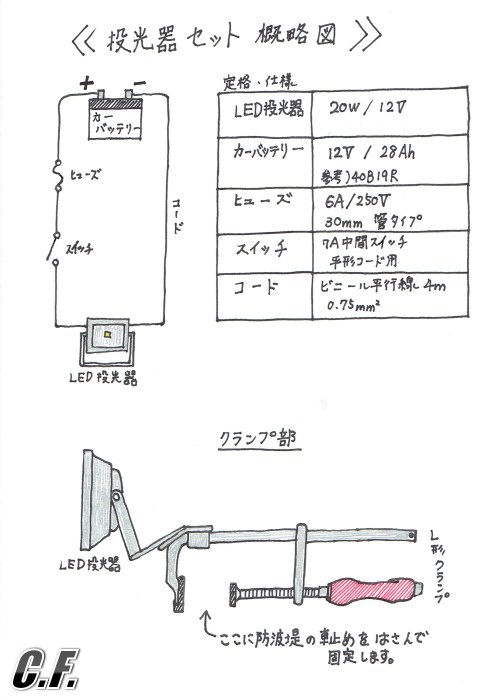 《投光器セット 概略図》
+ -
カー
バッテリー
ヒューズ
スイッチ
コード
LED投光器
定格・仕様
LED投光器 20W / 12V
カーバッテリー 12V / 28Ah
参考)40B19R
ヒューズ 6A/250V
30mm 管タイプ
スイッチ 7A中間スイッチ
平形コード用
コード ビニール平行線 4m
0.75mm²
クランプ部
LED投光器
L形クランプ
ここに防波堤の車止めをはさんで
固定します。
C.F.